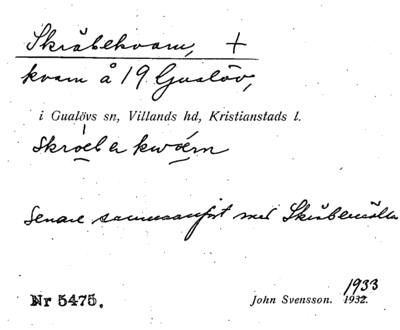 Skräbekvarn, +
kvarn å 19 Gualöv,
i Gualövs sn, Villands hd, Kristianstads l.
skräbekvarn
Senare sammanfört med Skräbemölla
1933
Nr 5475. John Svensson. 1932.